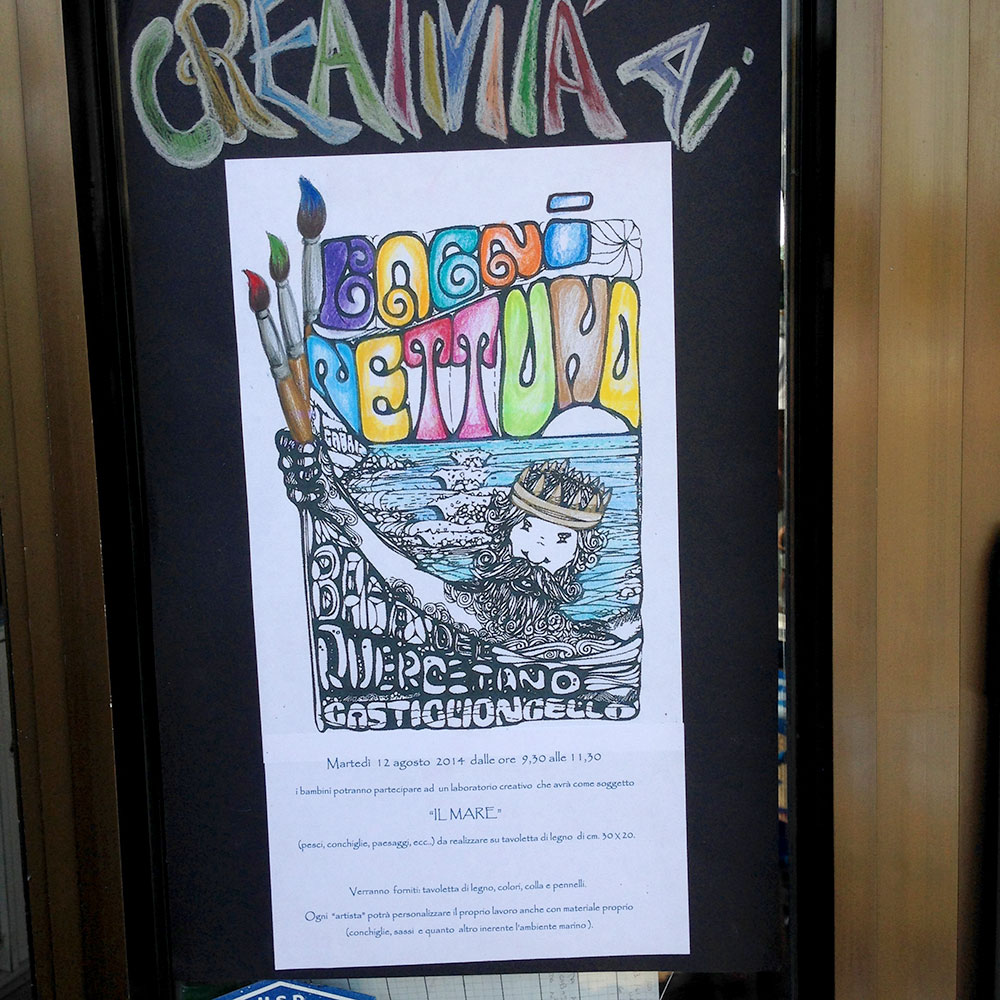 CREATIVITÀ Ai
BAGNI
NETTUNO
BAIA DEL
QUERCETANO
CASTIGLIONCELLO
Martedì 12 agosto 2014 dalle ore 9,30 alle 11,30
i bambini potranno partecipare ad un laboratorio creativo che avrà come soggetto
"IL MARE"
(pesci, conchiglie, paesaggi, ecc..) da realizzare su tavoletta di legno di cm. 30 X 20.
Verranno forniti: tavoletta di legno, colori, colla e pennelli.
Ogni "artista" potrà personalizzare il proprio lavoro anche con materiale proprio
(conchiglie, sassi e quanto altro inerente l'ambiente marino ).